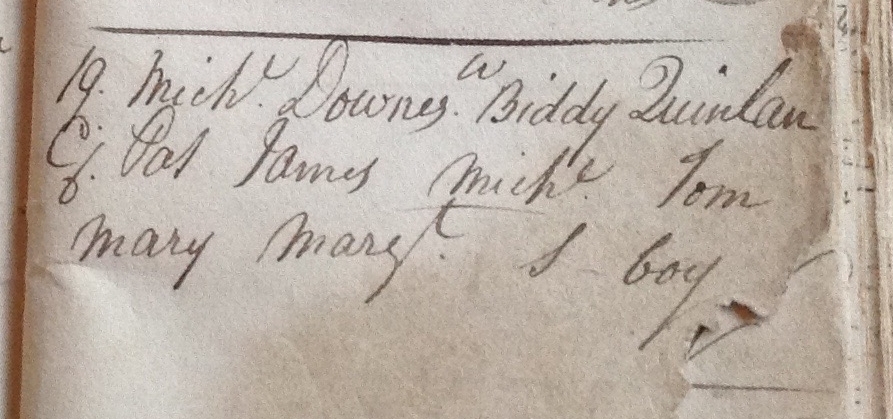 19. Mich.l Downes. w Biddy Quinlan
C. Pat James Mich.l Tom
Mary Marg.t S boy